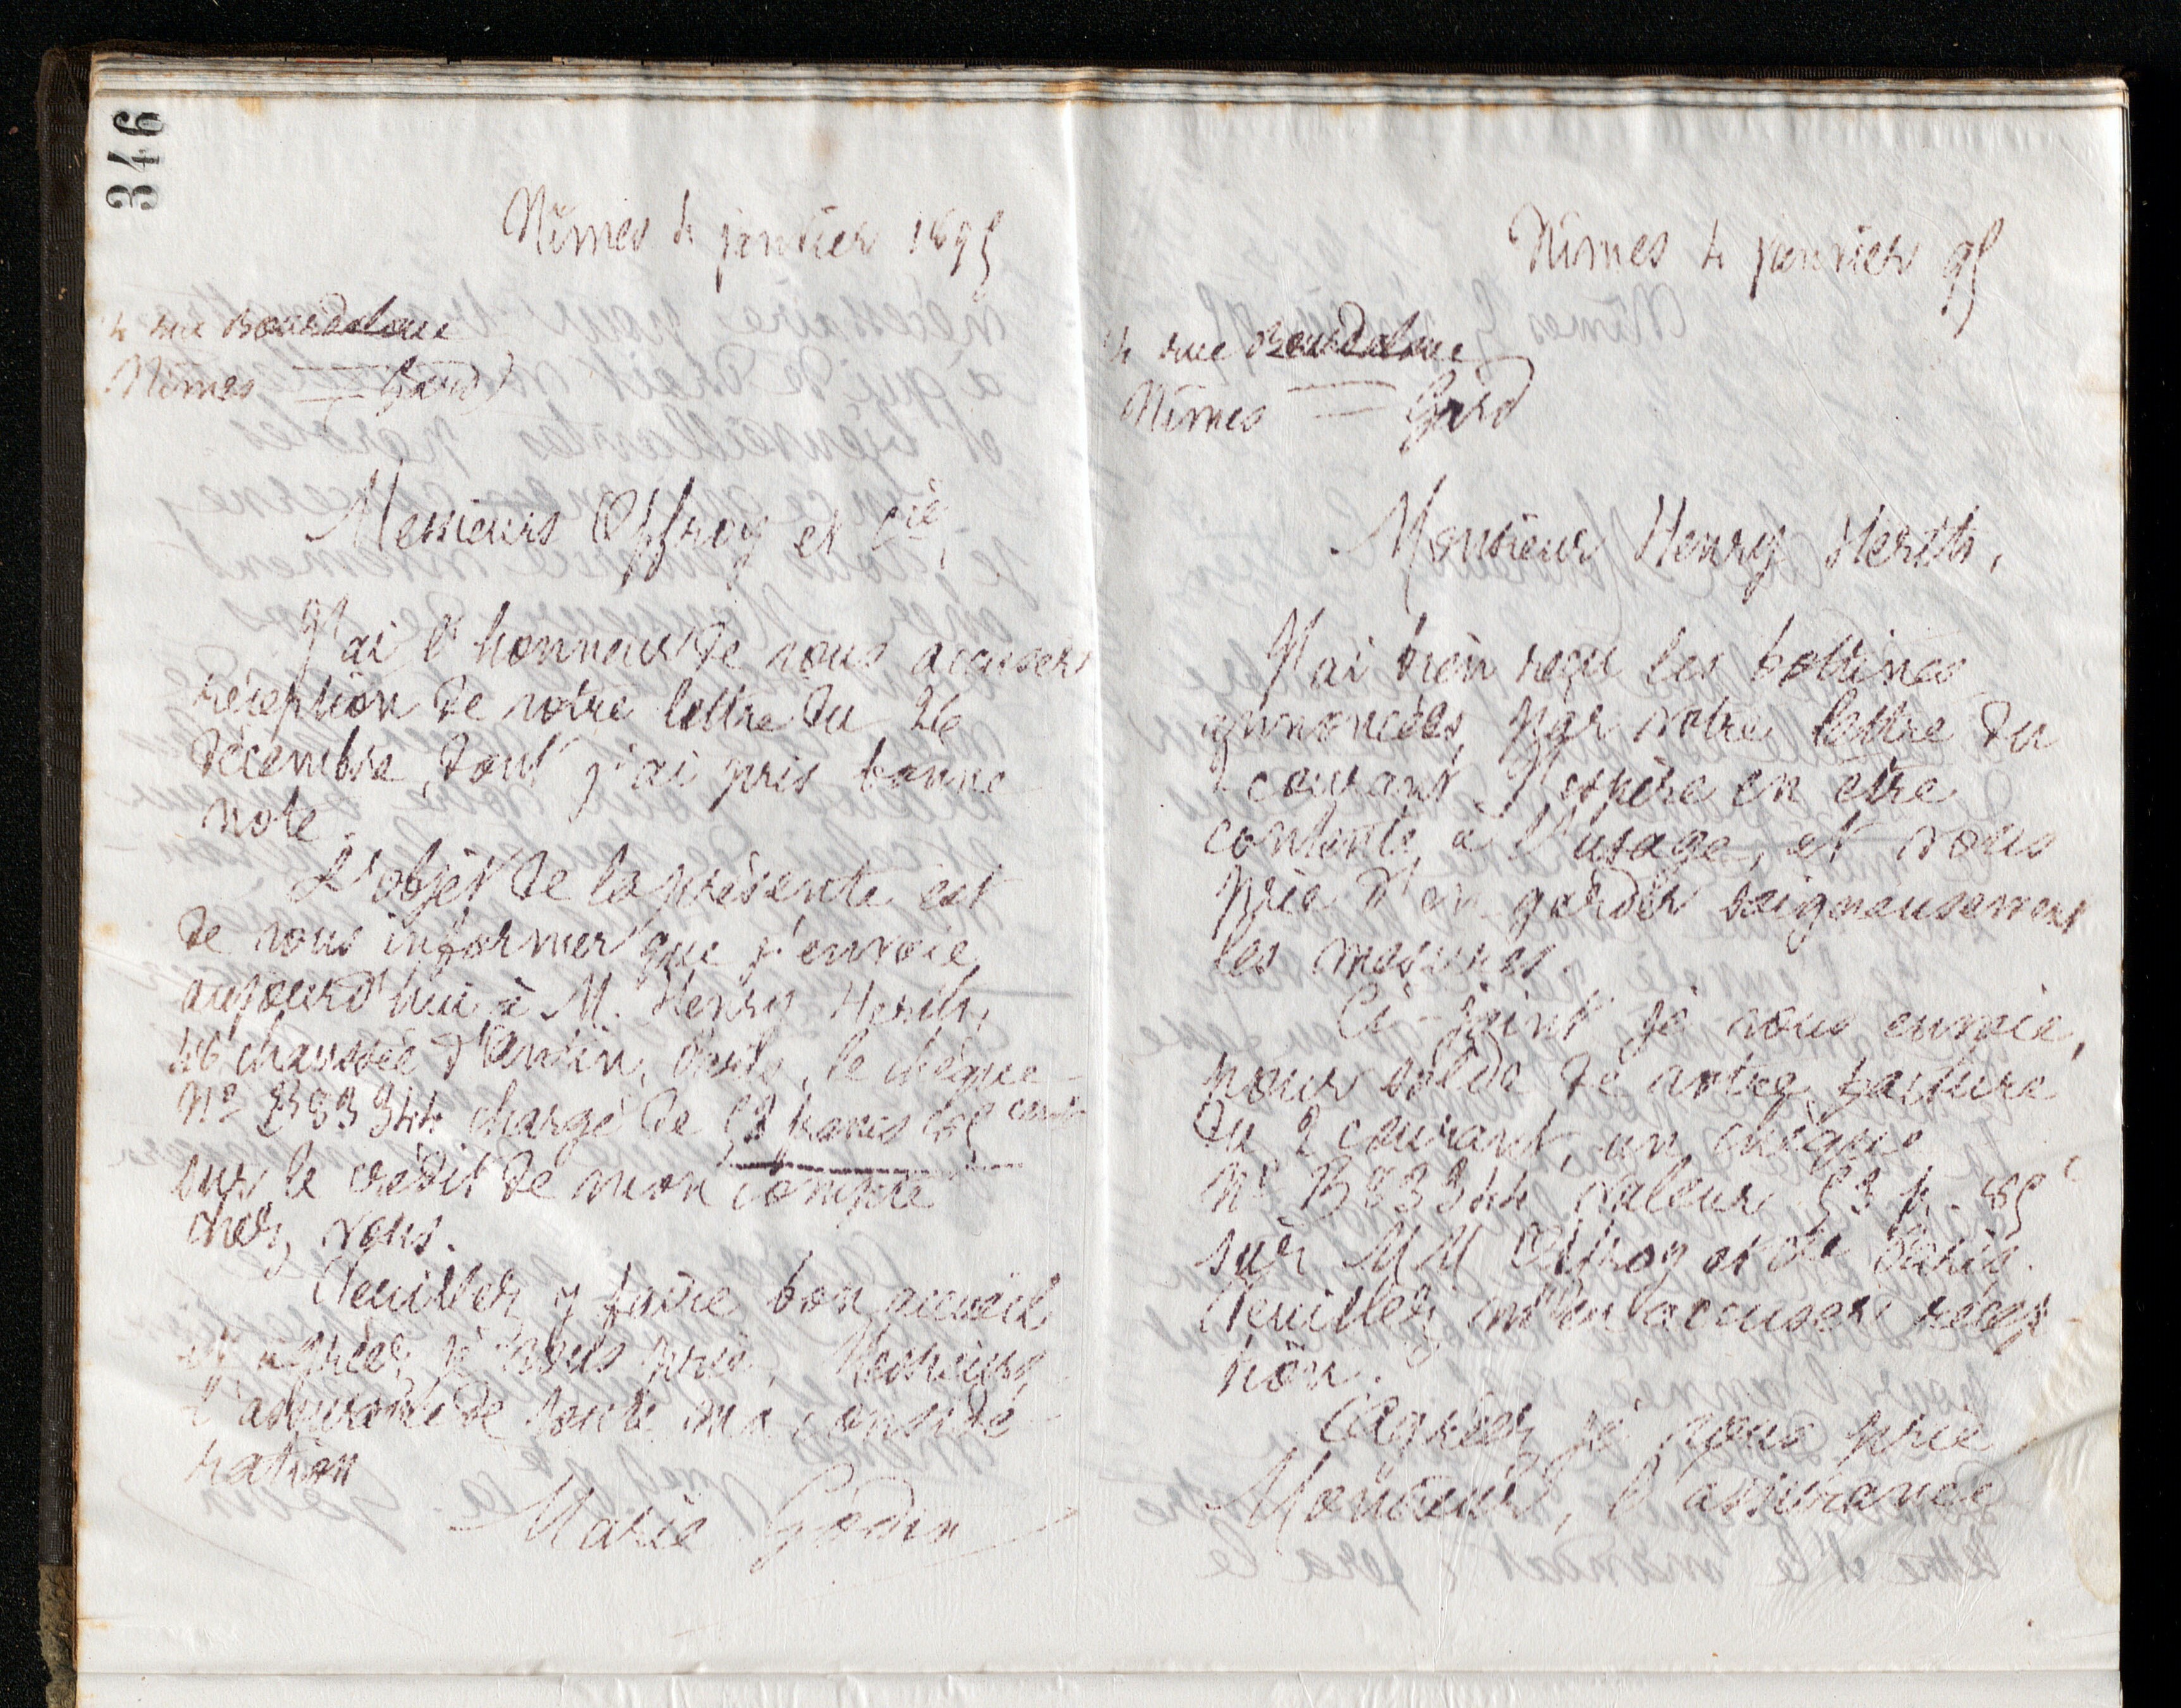 346
Nîmes 4 janvier 1895
4 rue Bourdaloue
Nîmes — (Gard)
Messieurs Offroy et Cie,
J'ai l'honneur de vous accuser
réception de votre lettre du 26
décembre, dont j'ai pris bonne
note.
L'objet de la présente est
de vous informer que j'envoie
aujourd'hui à M. Henry
46 chaussée d'Antin, Paris, le chèque
No chargé de francs
sur le crédit de mon compte
chez vous.
Veuillez y faire bon accueil
et agréer, je vous prie, Messieurs,
l'assurance de toute ma considé
ration
Marie Godin
Nîmes 4 janvier 95
4 rue Bourdaloue
Nîmes — Gard
Monsieur Henry
J'ai bien reçu les bottines
annoncées par votre lettre du
2 courant. J'espère en être
contente à l'usage, et vous
prie d'en garder soigneusement
les mesures.
Ci-joint je vous envoie,
pour solde de votre facture
du 2 courant, un chèque
No B 333944 valeur 53 f. 85c
sur MM Offroy et Cie Paris.
Veuillez m'en accuser récep
tion.
Agréez je vous prie
Monsieur, l'assurance